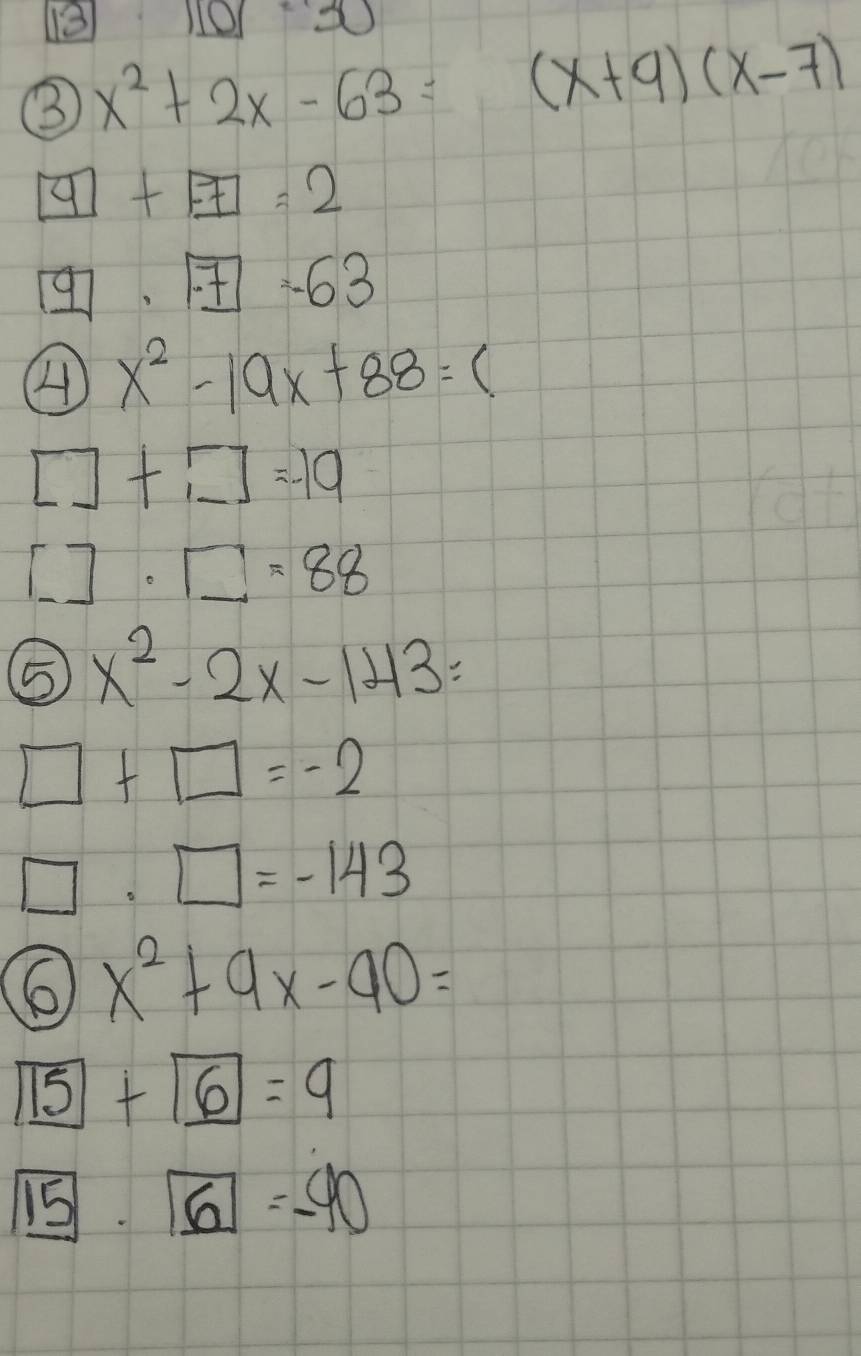 13 · 10 = 30
③ x² + 2x - 63 = (x+9)(x-7)
9 + -7 = 2
9 · -7 = -63
④ x² - 19x + 88 = (
□ + □ = -19
□ · □ = 88
⑤ x² - 2x - 143 =
□ + □ = -2
□ · □ = -143
⑥ x² + 9x - 90 =
15 + 6 = 9
15 · 6 = -90